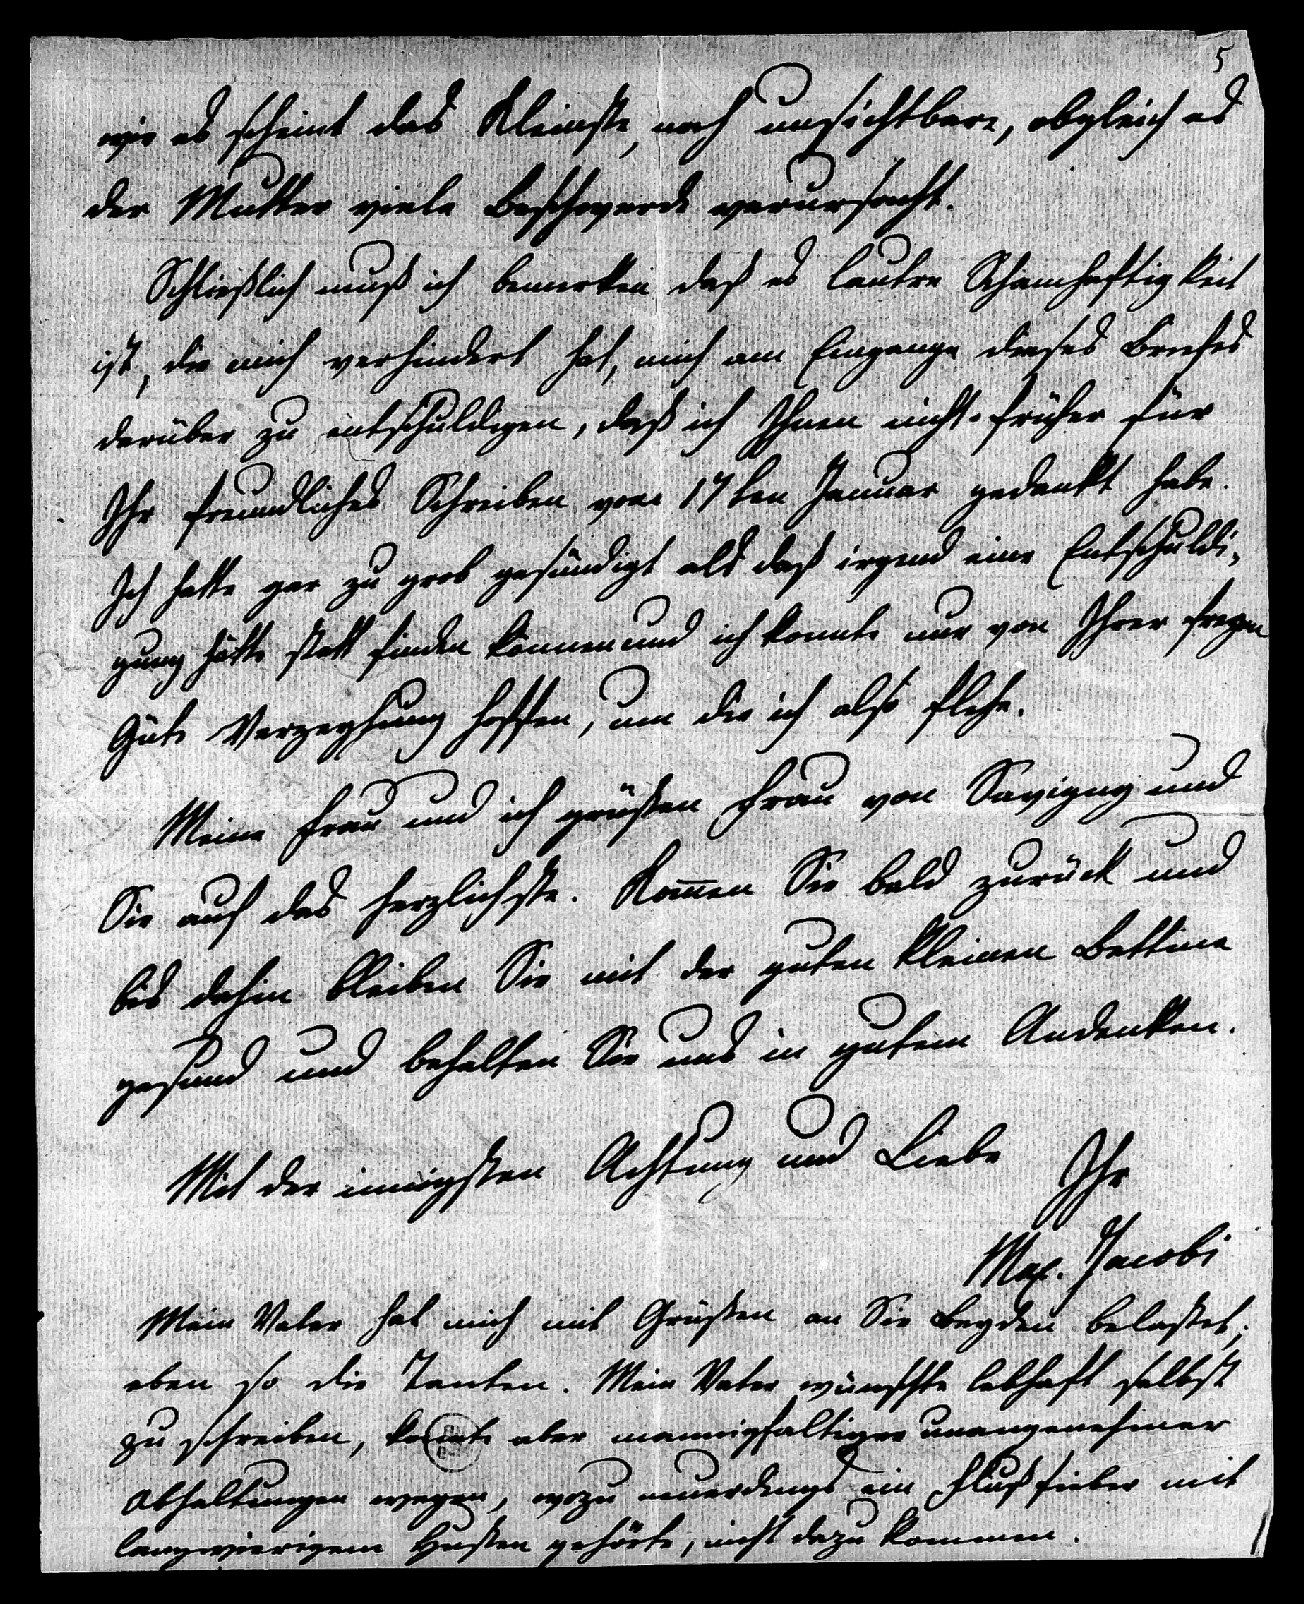 5
wie es scheint das Kleinste, noch unsichtbare, obgleich es
der Mutter viele Beschwerde verursacht.
Schließlich muß ich bemerken daß es lautre Schamhaftigkeit
ist, die mich verhindert hat, mich am Eingange dieses Briefes
darüber zu entschuldigen, daß ich Ihnen nicht früher für
Ihr freundliches Schreiben vom 17ten Januar gedankt habe.
Ich hatte gar zu grob gesündigt als daß irgend eine Entschuldi-
gung hätte statt finden können und ich konnte nur von Ihrer
Güte Verzeyhung hoffen, um die ich also flehe.
Meine Frau und ich grüßen Frau von Savigny und
Sie auf das herzlichste. Kom̄en Sie bald zurück und
bis dahin bleiben Sie mit der guten kleinen Bettine
gesund und behalten Sie uns in gutem Andenken.
Mit der innigsten Achtung und Liebe Ihr
Max. Jacobi
Mein Vater hat mich mit Grüßen an Sie Beyden belastet;
eben so die Tanten. Mein Vater wünschte lebhaft selbst
zu schreiben, konnte aber mannigfaltiger unangenehmer
Abhaltungen wegen, wozu neuerdings ein Flußfieber mit
langwierigem Husten gehörte, nicht dazu kommen.